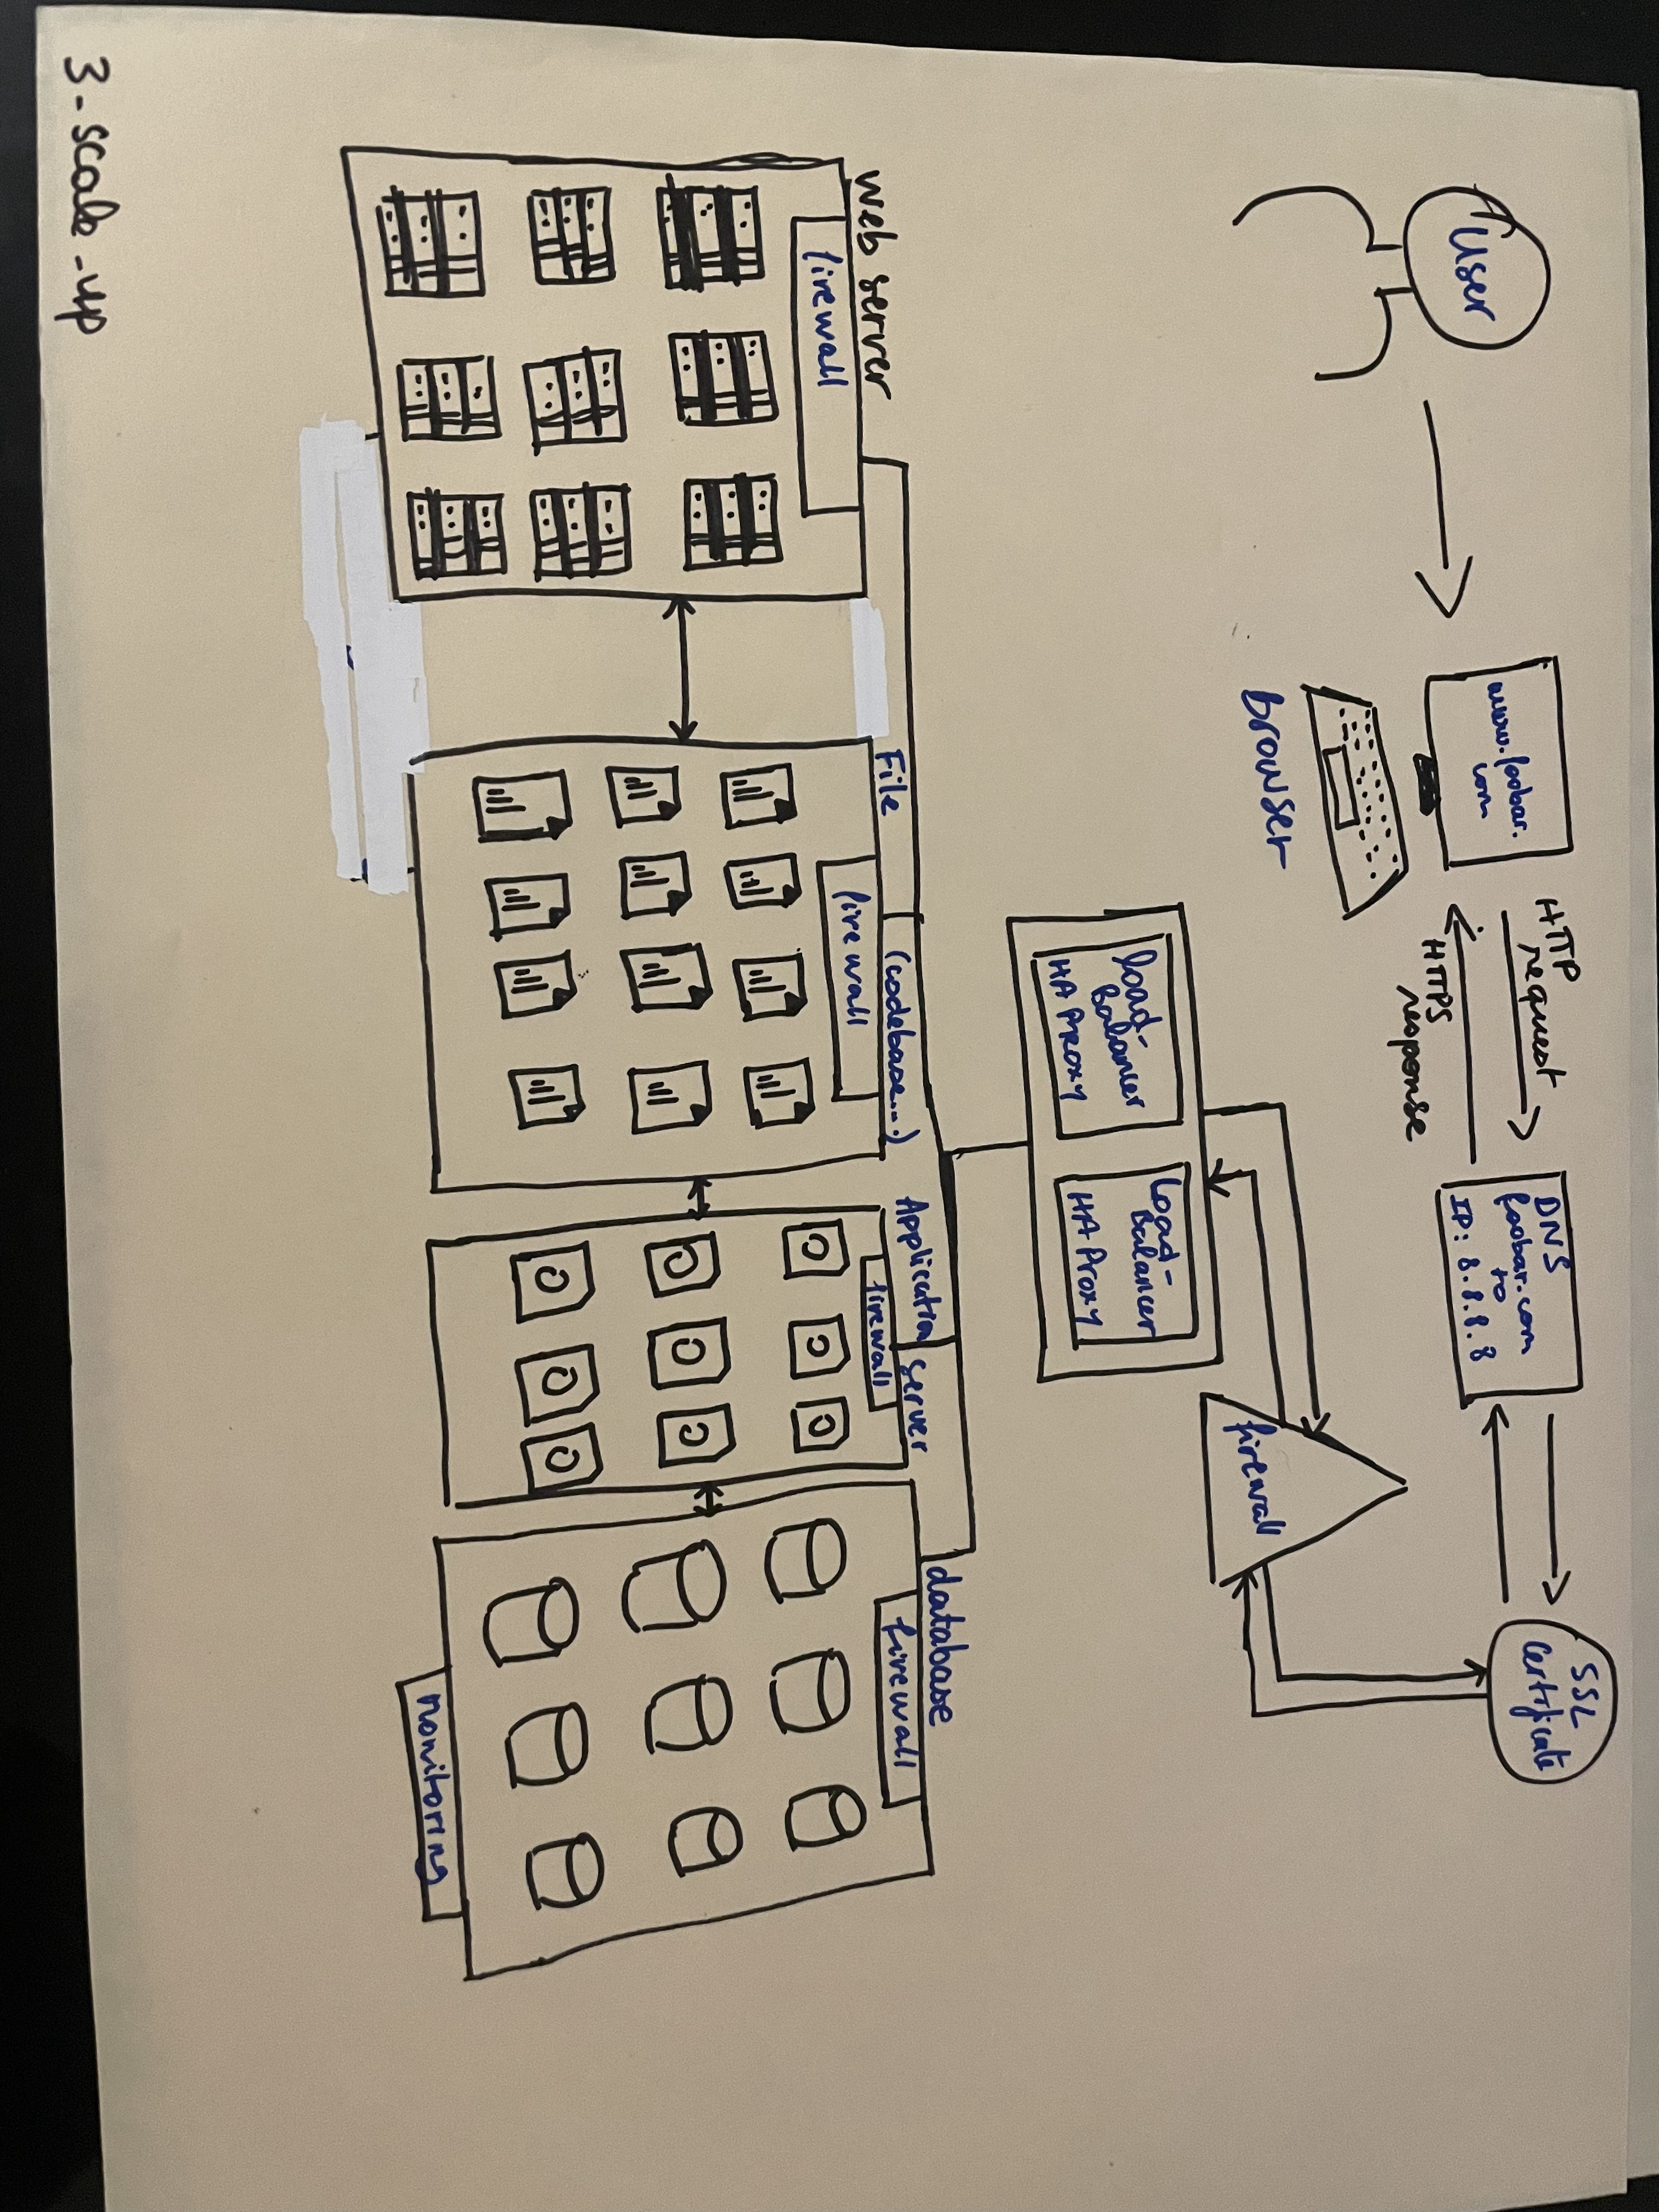 User
www.foobar.
com
browser
HTTP
request
HTTPS
response
DNS
foobar.com
to
IP: 8.8.8.8
SSL
Certificate
firewall
load-
Balancer
HA Proxy
Load-
Balancer
HA Proxy
web server
firewall
File (codebase...)
firewall
Application server
firewall
database
firewall
monitoring
3-scale-up